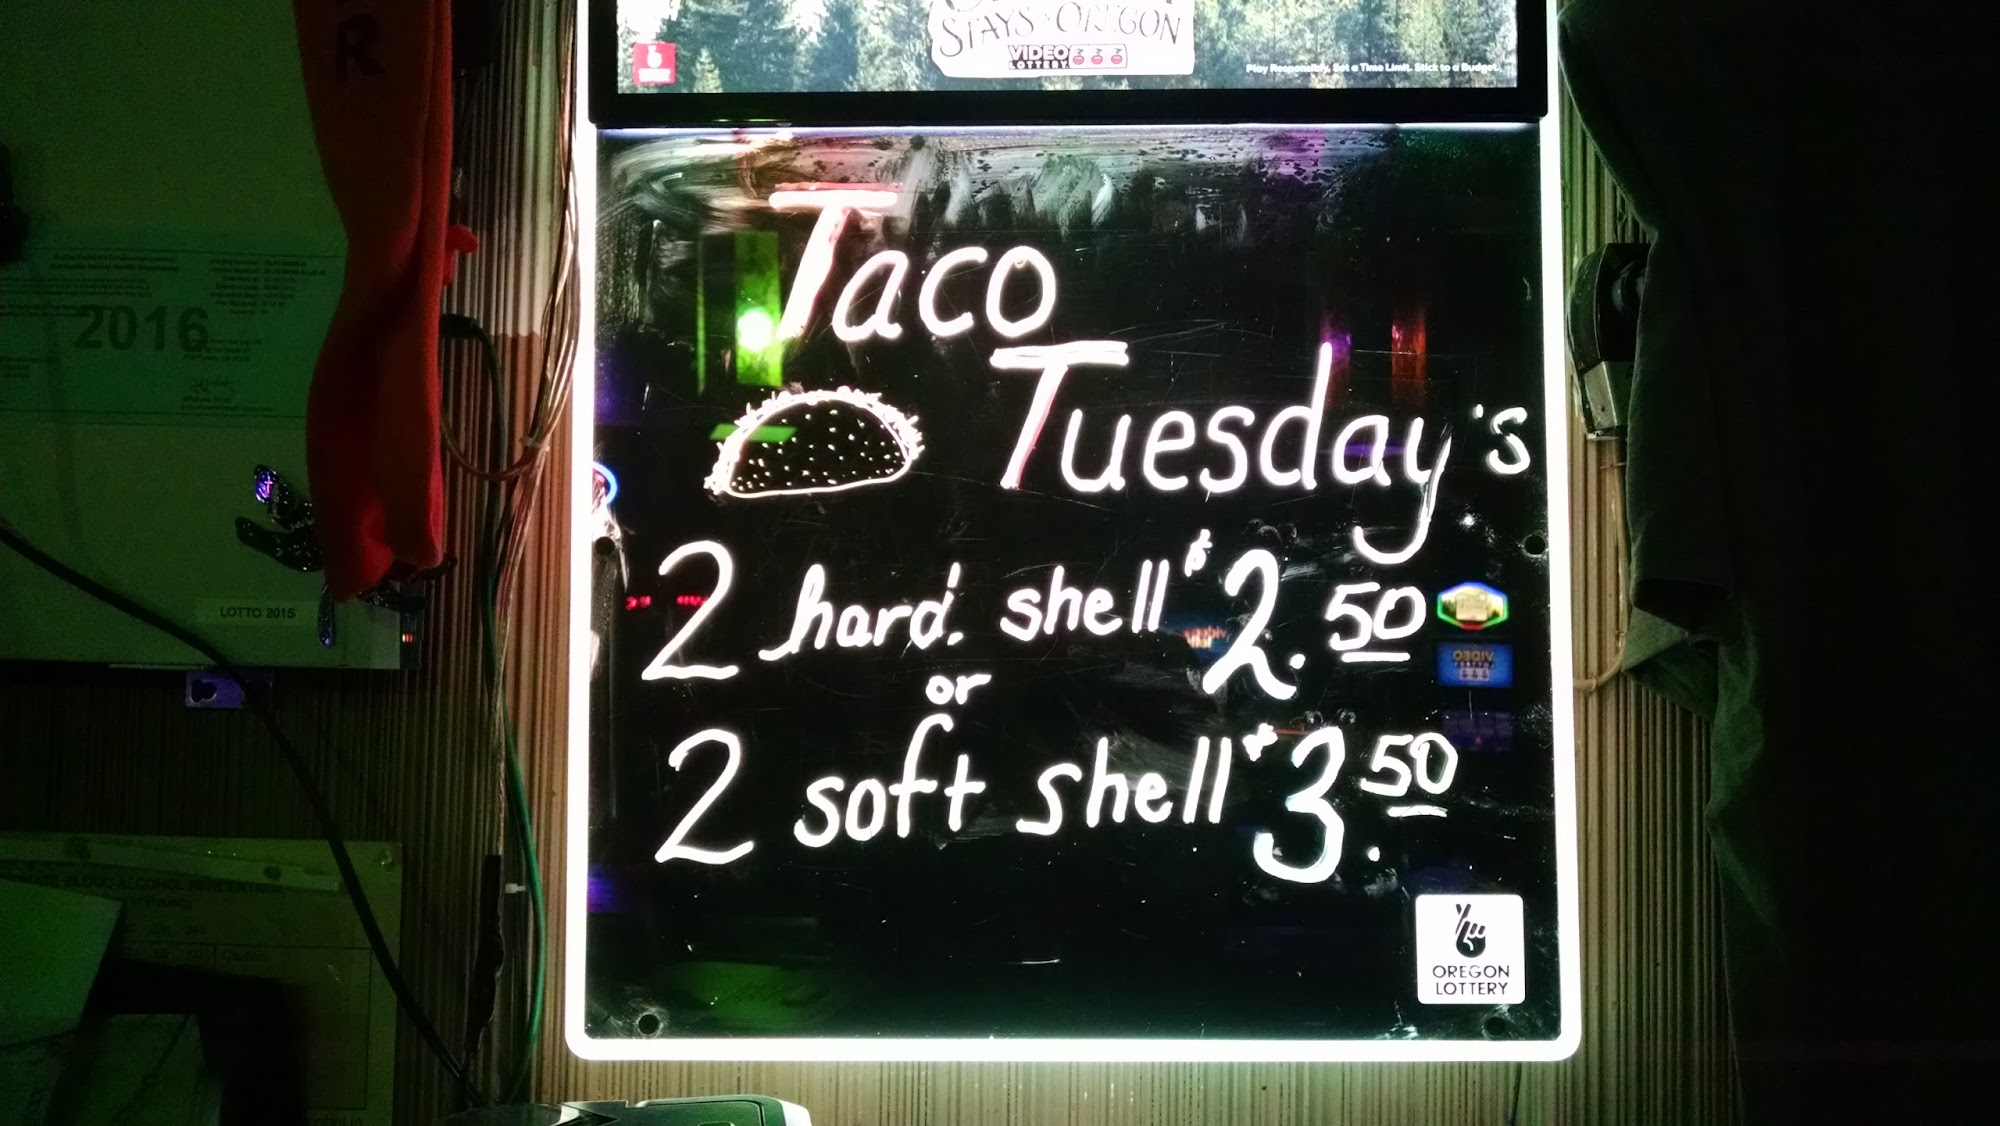 STAYS OREGON
VIDEO
LOTTERY
Play Responsibly. Set a Time Limit. Stick to a Budget.
R
2016
LOTTO 2015
Taco
Tuesday's
2 hard. shell $2.50
or
2 soft shell $3.50
OREGON
LOTTERY
BLOOD ALCOHOL PERCENTAGE
Caution